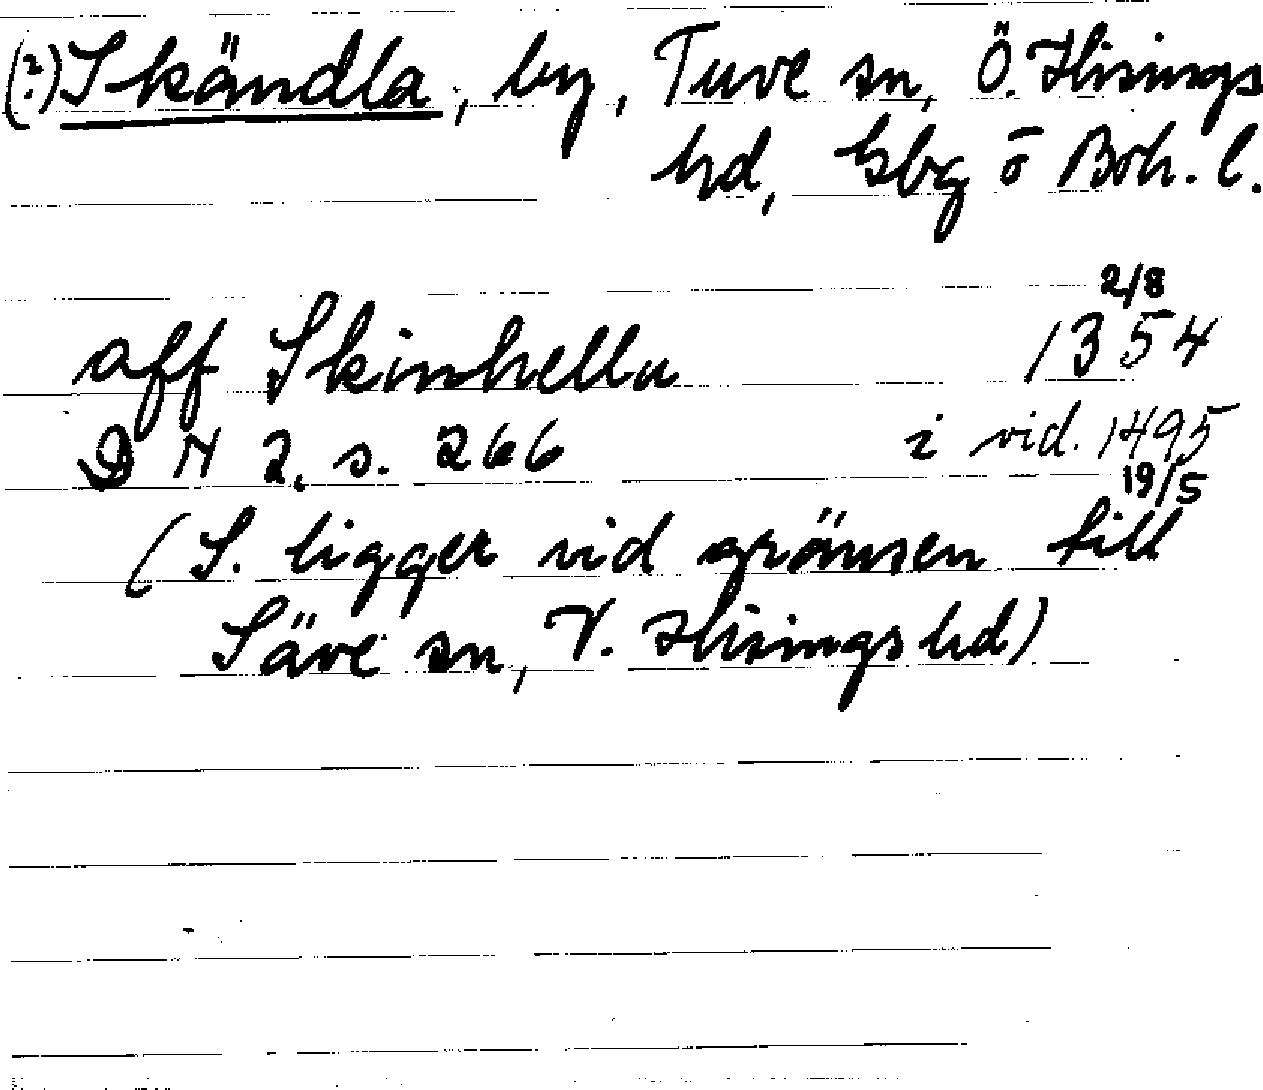 (?) Skändla, by, Tuve sn, Ö. Hisings
hd, Gbg o Boh. l.
2/8
aff Skinhella 1354
D N 2, s. 266 i vid. 1495
19/5
(S. ligger vid gränsen till
Säve sn, V. Hisings hd)